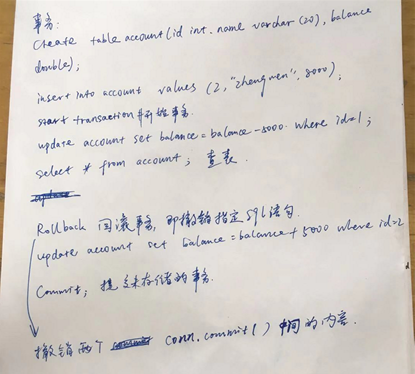 事务:
Create table account(id int, name varchar(20), balance
double);
insert into account values (2, "zhengwen", 8000);
start transaction 开始事务.
update account set balance = balance - 5000 where id=1;
select * from account; 查表.
Rollback 回滚事务, 即撤销指定sql语句.
update account set balance = balance + 5000 where id=2
Commit; 提交未存储的事务.
撤销两个 conn.commit() 中间的内容.